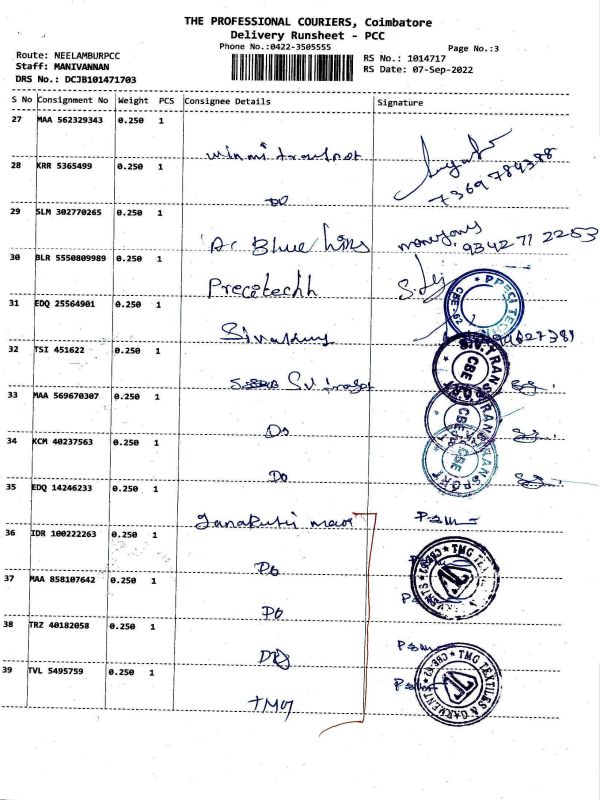 THE PROFESSIONAL COURIERS, Coimbatore
Delivery Runsheet - PCC
Phone No.:0422-3505555
Page No.:3
Route: NEELAMBURPCC
RS No.: 1014717
Staff: MANIVANNAN
RS Date: 07-Sep-2022
DRS No.: DCJB101471703
S No Consignment No Weight PCS Consignee Details Signature
27 MAA 562329343 0.250 1
28 KRR 5365499 0.250 1
DO
29 SLM 302770265 0.250 1
Blue hills
9342 71 2253
30 BLR 5550809989 0.250 1
31 EDQ 25564901 0.250 1
32 TSI 451622 0.250 1
S.V.TRANSPORT
CBE
33 MAA 569670307 0.250 1
Do
34 KCM 40237563 0.250 1
Do
35 EDQ 14246233 0.250 1
36 IDR 100222263 0.250 1
Do
37 MAA 858107642 0.250 1
Do
38 TRZ 40182058 0.250 1
39 TVL 5495759 0.250 1
TMG
TMG TEXTILES & GARMENTS
CBE-62